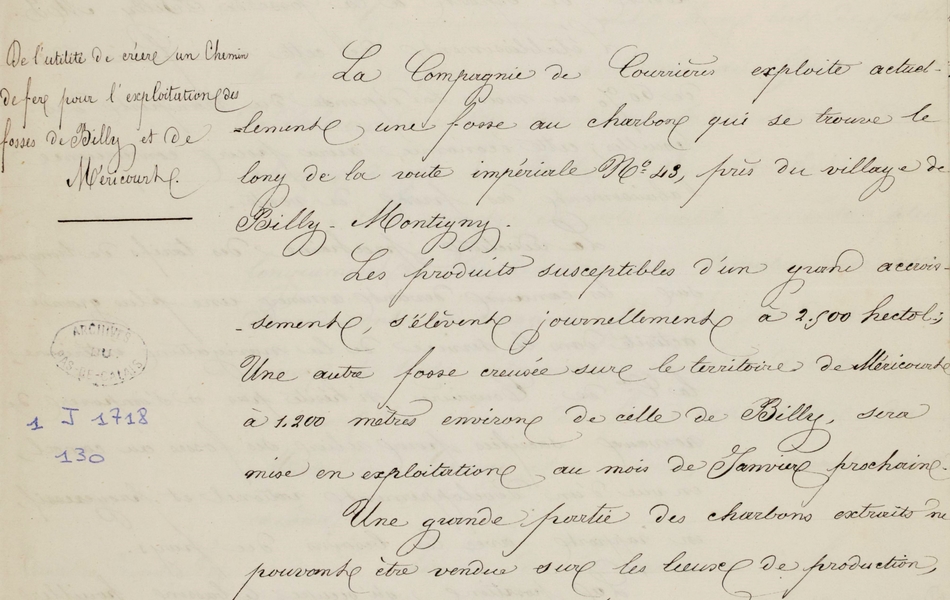 De l'utilité de créer un Chemin
de fer pour l'exploitation des
fosses de Billy et de
Méricourt.
La Compagnie de Courrières exploite actuel-
-lement une fosse au charbon qui se trouve le
long de la route impériale No. 43, près du village de
Billy-Montigny.
Les produits susceptibles d'un grand accrois-
-sement, s'élèvent journellement à 2.500 hectol.;
Une autre fosse creusée sur le territoire de Méricourt
à 1.200 mètres environ de celle de Billy, sera
mise en exploitation au mois de Janvier prochain.
Une grande partie des charbons extraits ne
pouvant être vendue sur les lieux de production,
ARCHIVES
DU
PAS-DE-CALAIS
1 J 1718
130